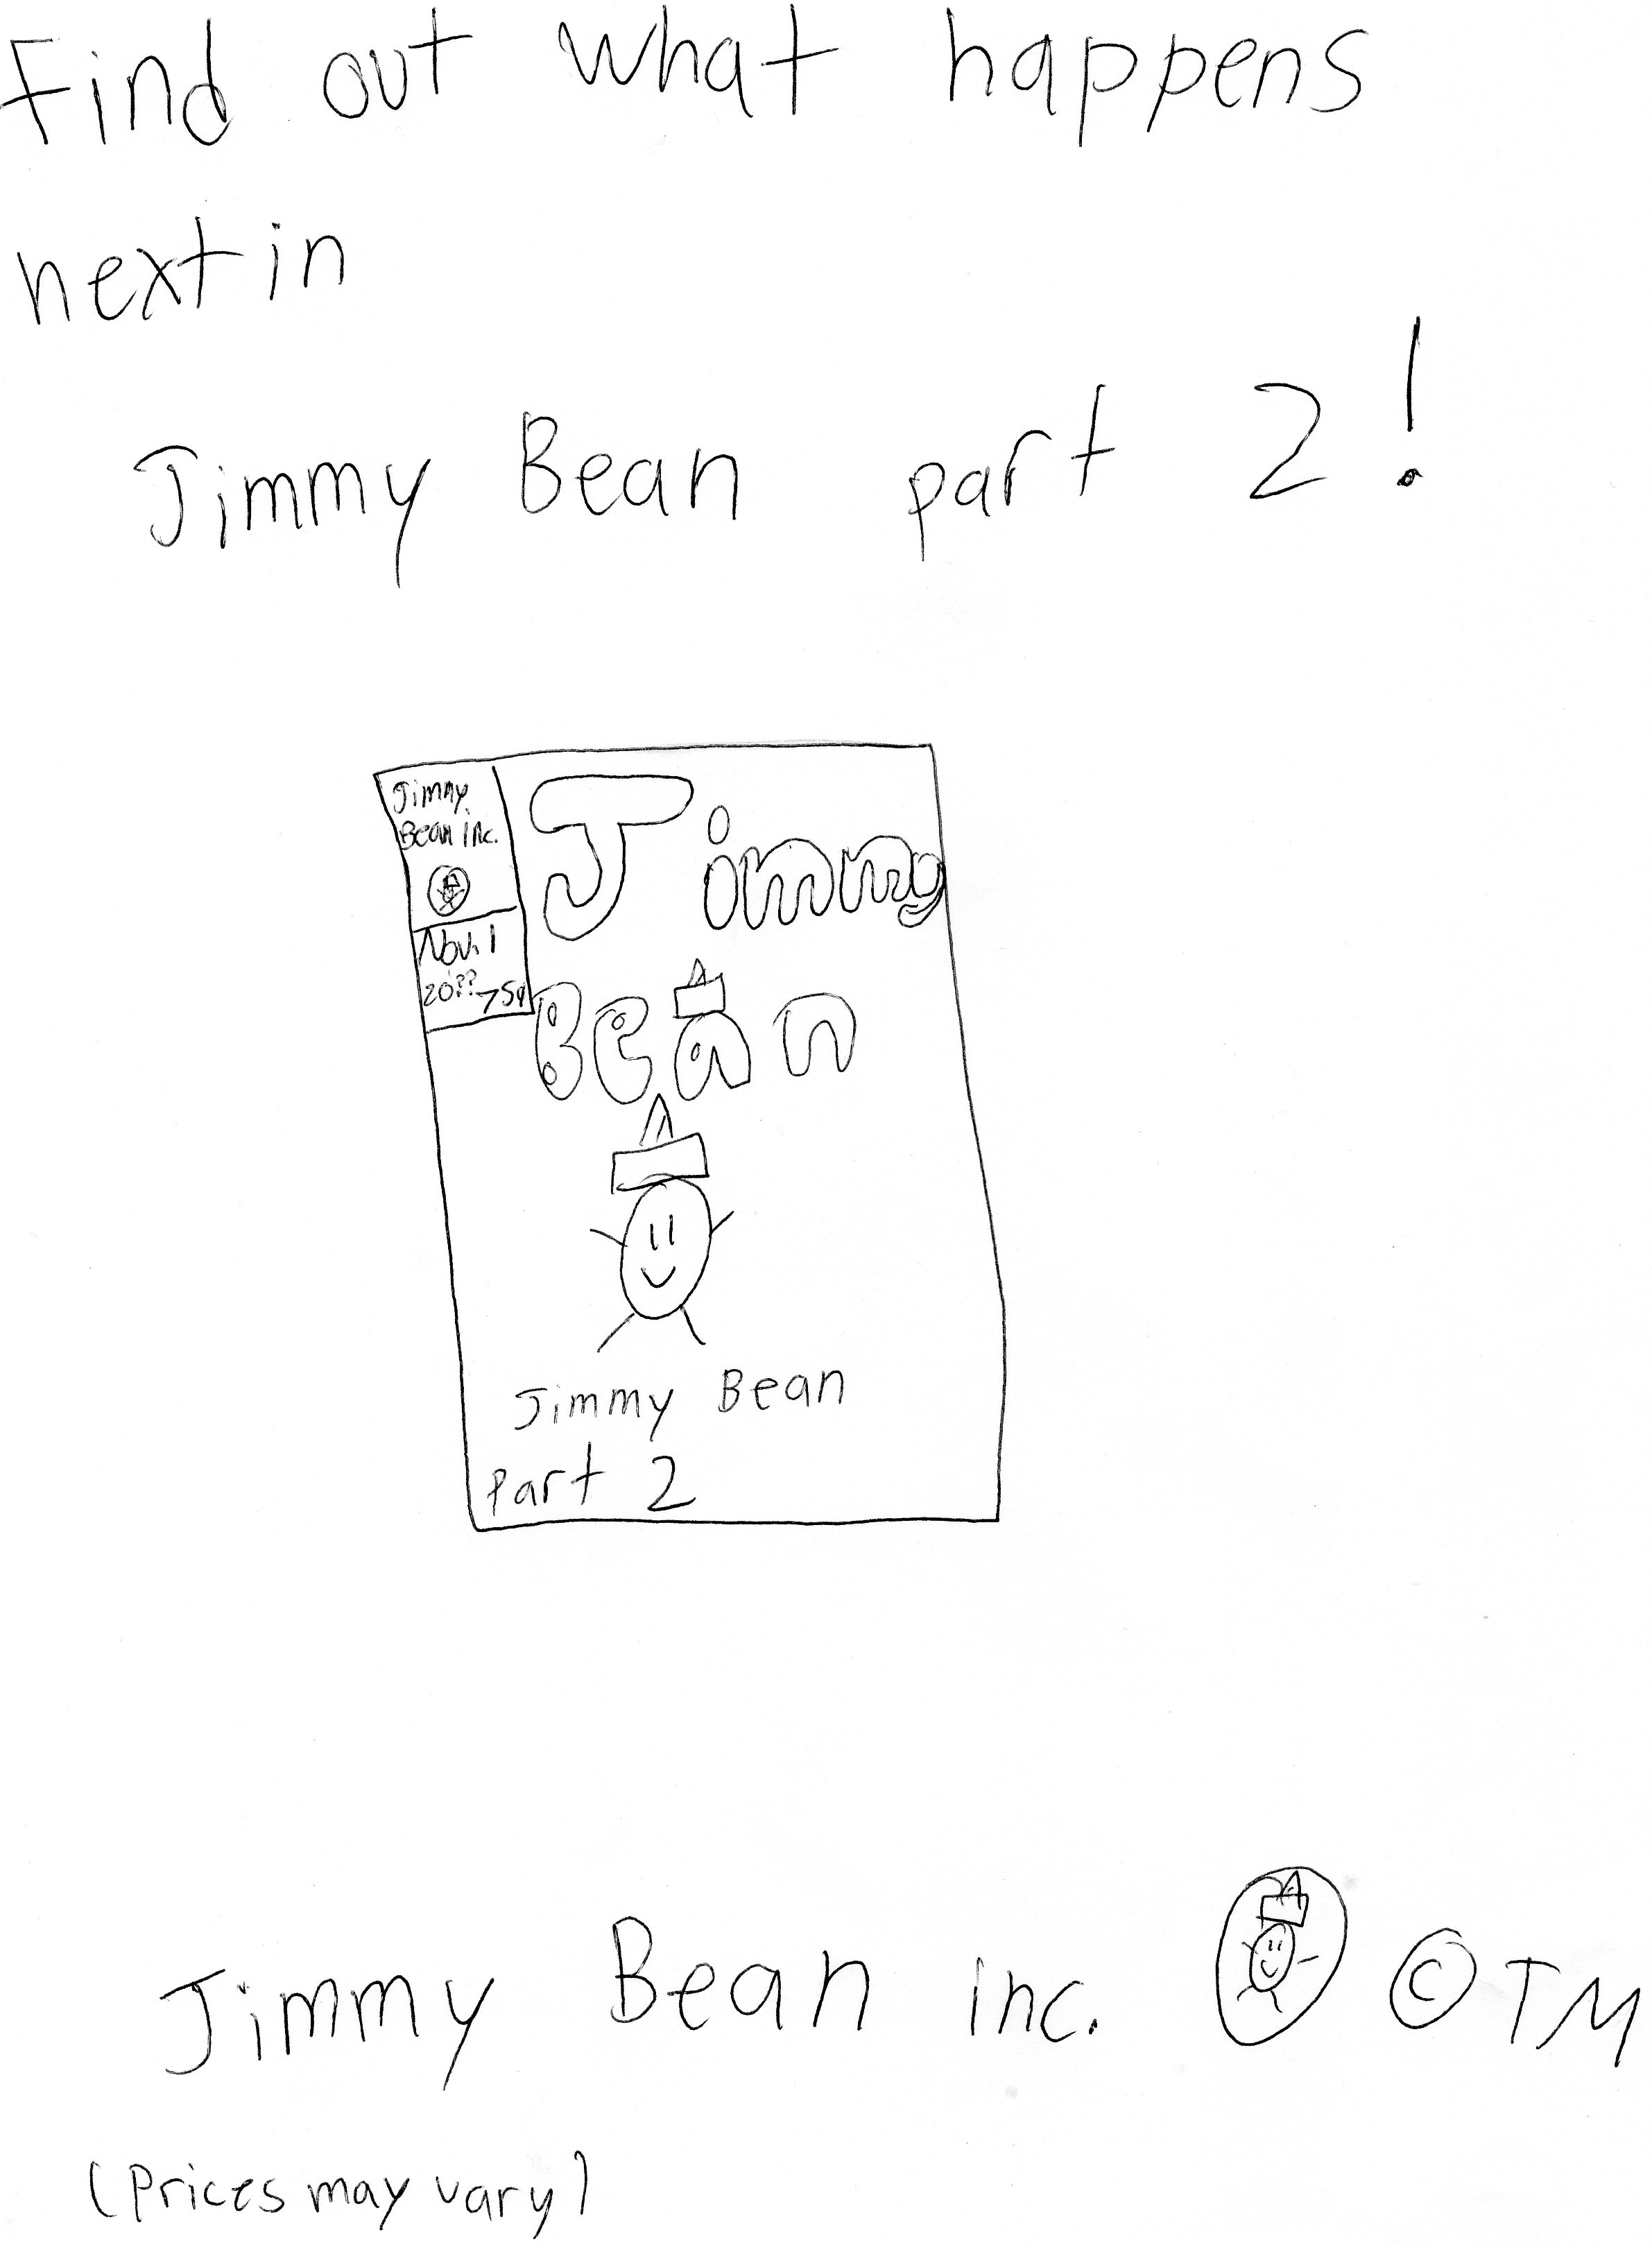 Find out what happens
next in
Jimmy Bean part 2!
Jimmy
Bean inc.
Nov. 1
20?? 75¢
Jimmy
Bean
Jimmy Bean
Part 2
Jimmy Bean inc. © TM
(Prices may vary)